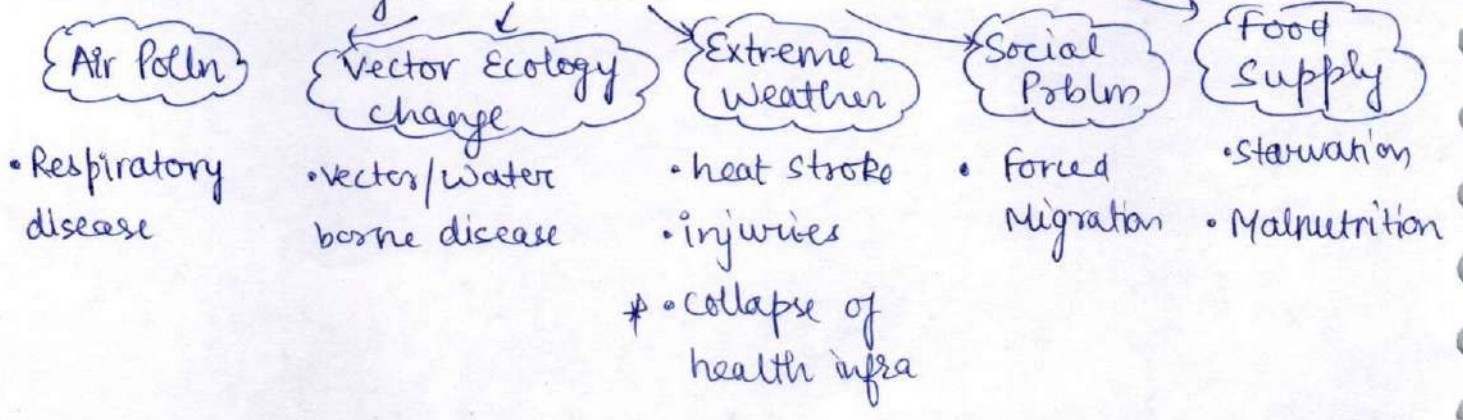 Air Polln
• Respiratory
disease
Vector Ecology
change
• vector/water
borne disease
Extreme
Weather
• heat stroke
• injuries
* • collapse of
health infra
Social
Prblm
• Forced
Migration
Food
Supply
• starvation
• Malnutrition